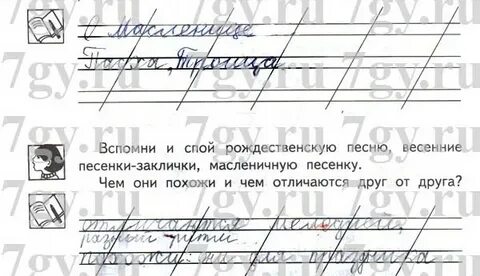 О Масленице
Пасха, Троица
Вспомни и спой рождественскую песню, весенние
песенки-заклички, масленичную песенку.
Чем они похожи и чем отличаются друг от друга?
отличаются мелодией,
разный ритм
похожи: на для праздника
7gy.ru